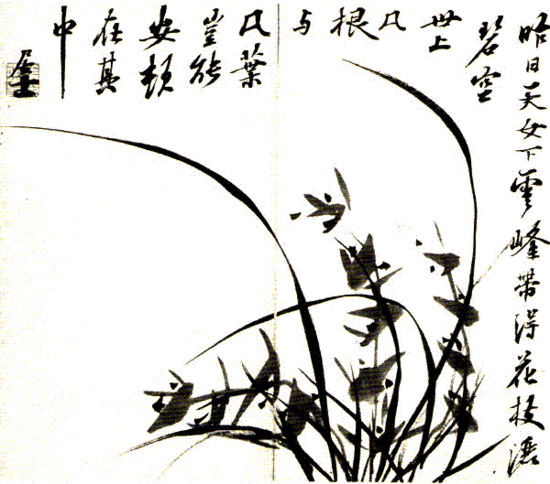 昨日天女下雲峰帶得花枝灑
碧空
世上
凡
根
与
凡葉
豈能
安頓
在其
中